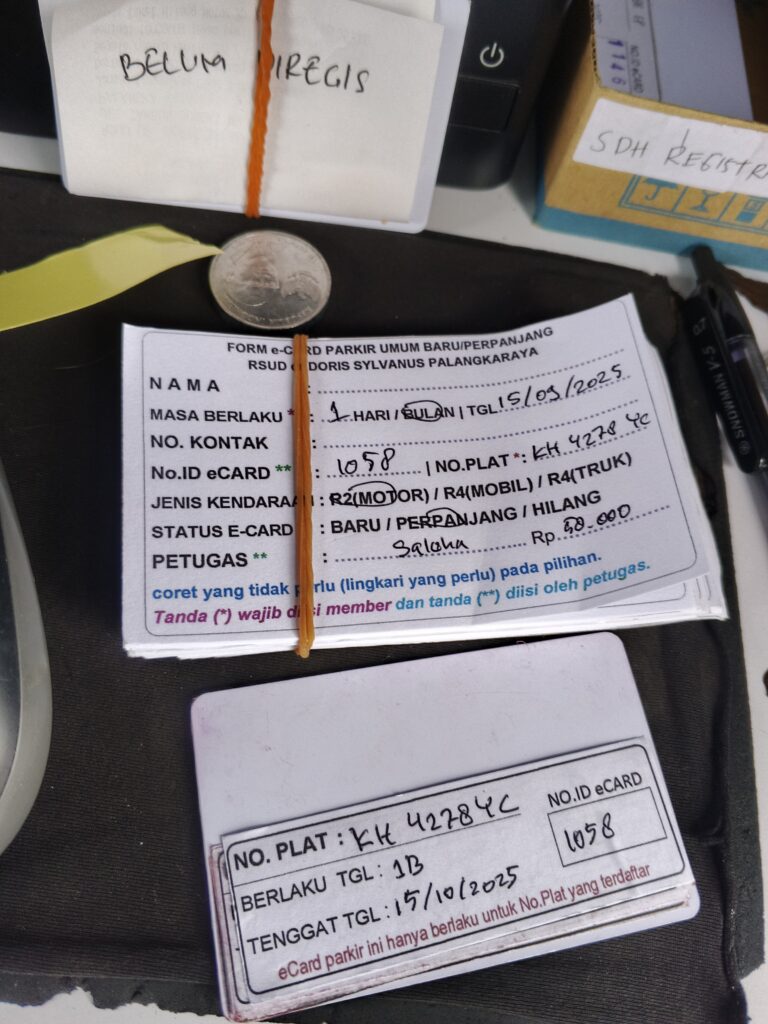 BELUM DIREGIS
NO.ID eCARD
1146
SDH REGISTRA
FORM e-CARD PARKIR UMUM BARU/PERPANJANG
RSUD DORIS SYLVANUS PALANGKARAYA
NAMA :
MASA BERLAKU * : 1 HARI / BULAN | TGL 15/09/2025
NO. KONTAK :
No.ID eCARD ** : 1058 | NO.PLAT * : KH 4278 YC
JENIS KENDARAAN : R2(MOTOR) / R4(MOBIL) / R4(TRUK)
STATUS E-CARD : BARU / PERPANJANG / HILANG
PETUGAS ** : Saloha Rp. 50.000
coret yang tidak perlu (lingkari yang perlu) pada pilihan.
Tanda (*) wajib diisi member dan tanda (**) diisi oleh petugas.
SNOWMAN V-5 0.7
NO. PLAT : KH 4278 YC
NO.ID eCARD
1058
BERLAKU TGL : 1B
TENGGAT TGL : 15/10/2025
eCard parkir ini hanya berlaku untuk No.Plat yang terdaftar